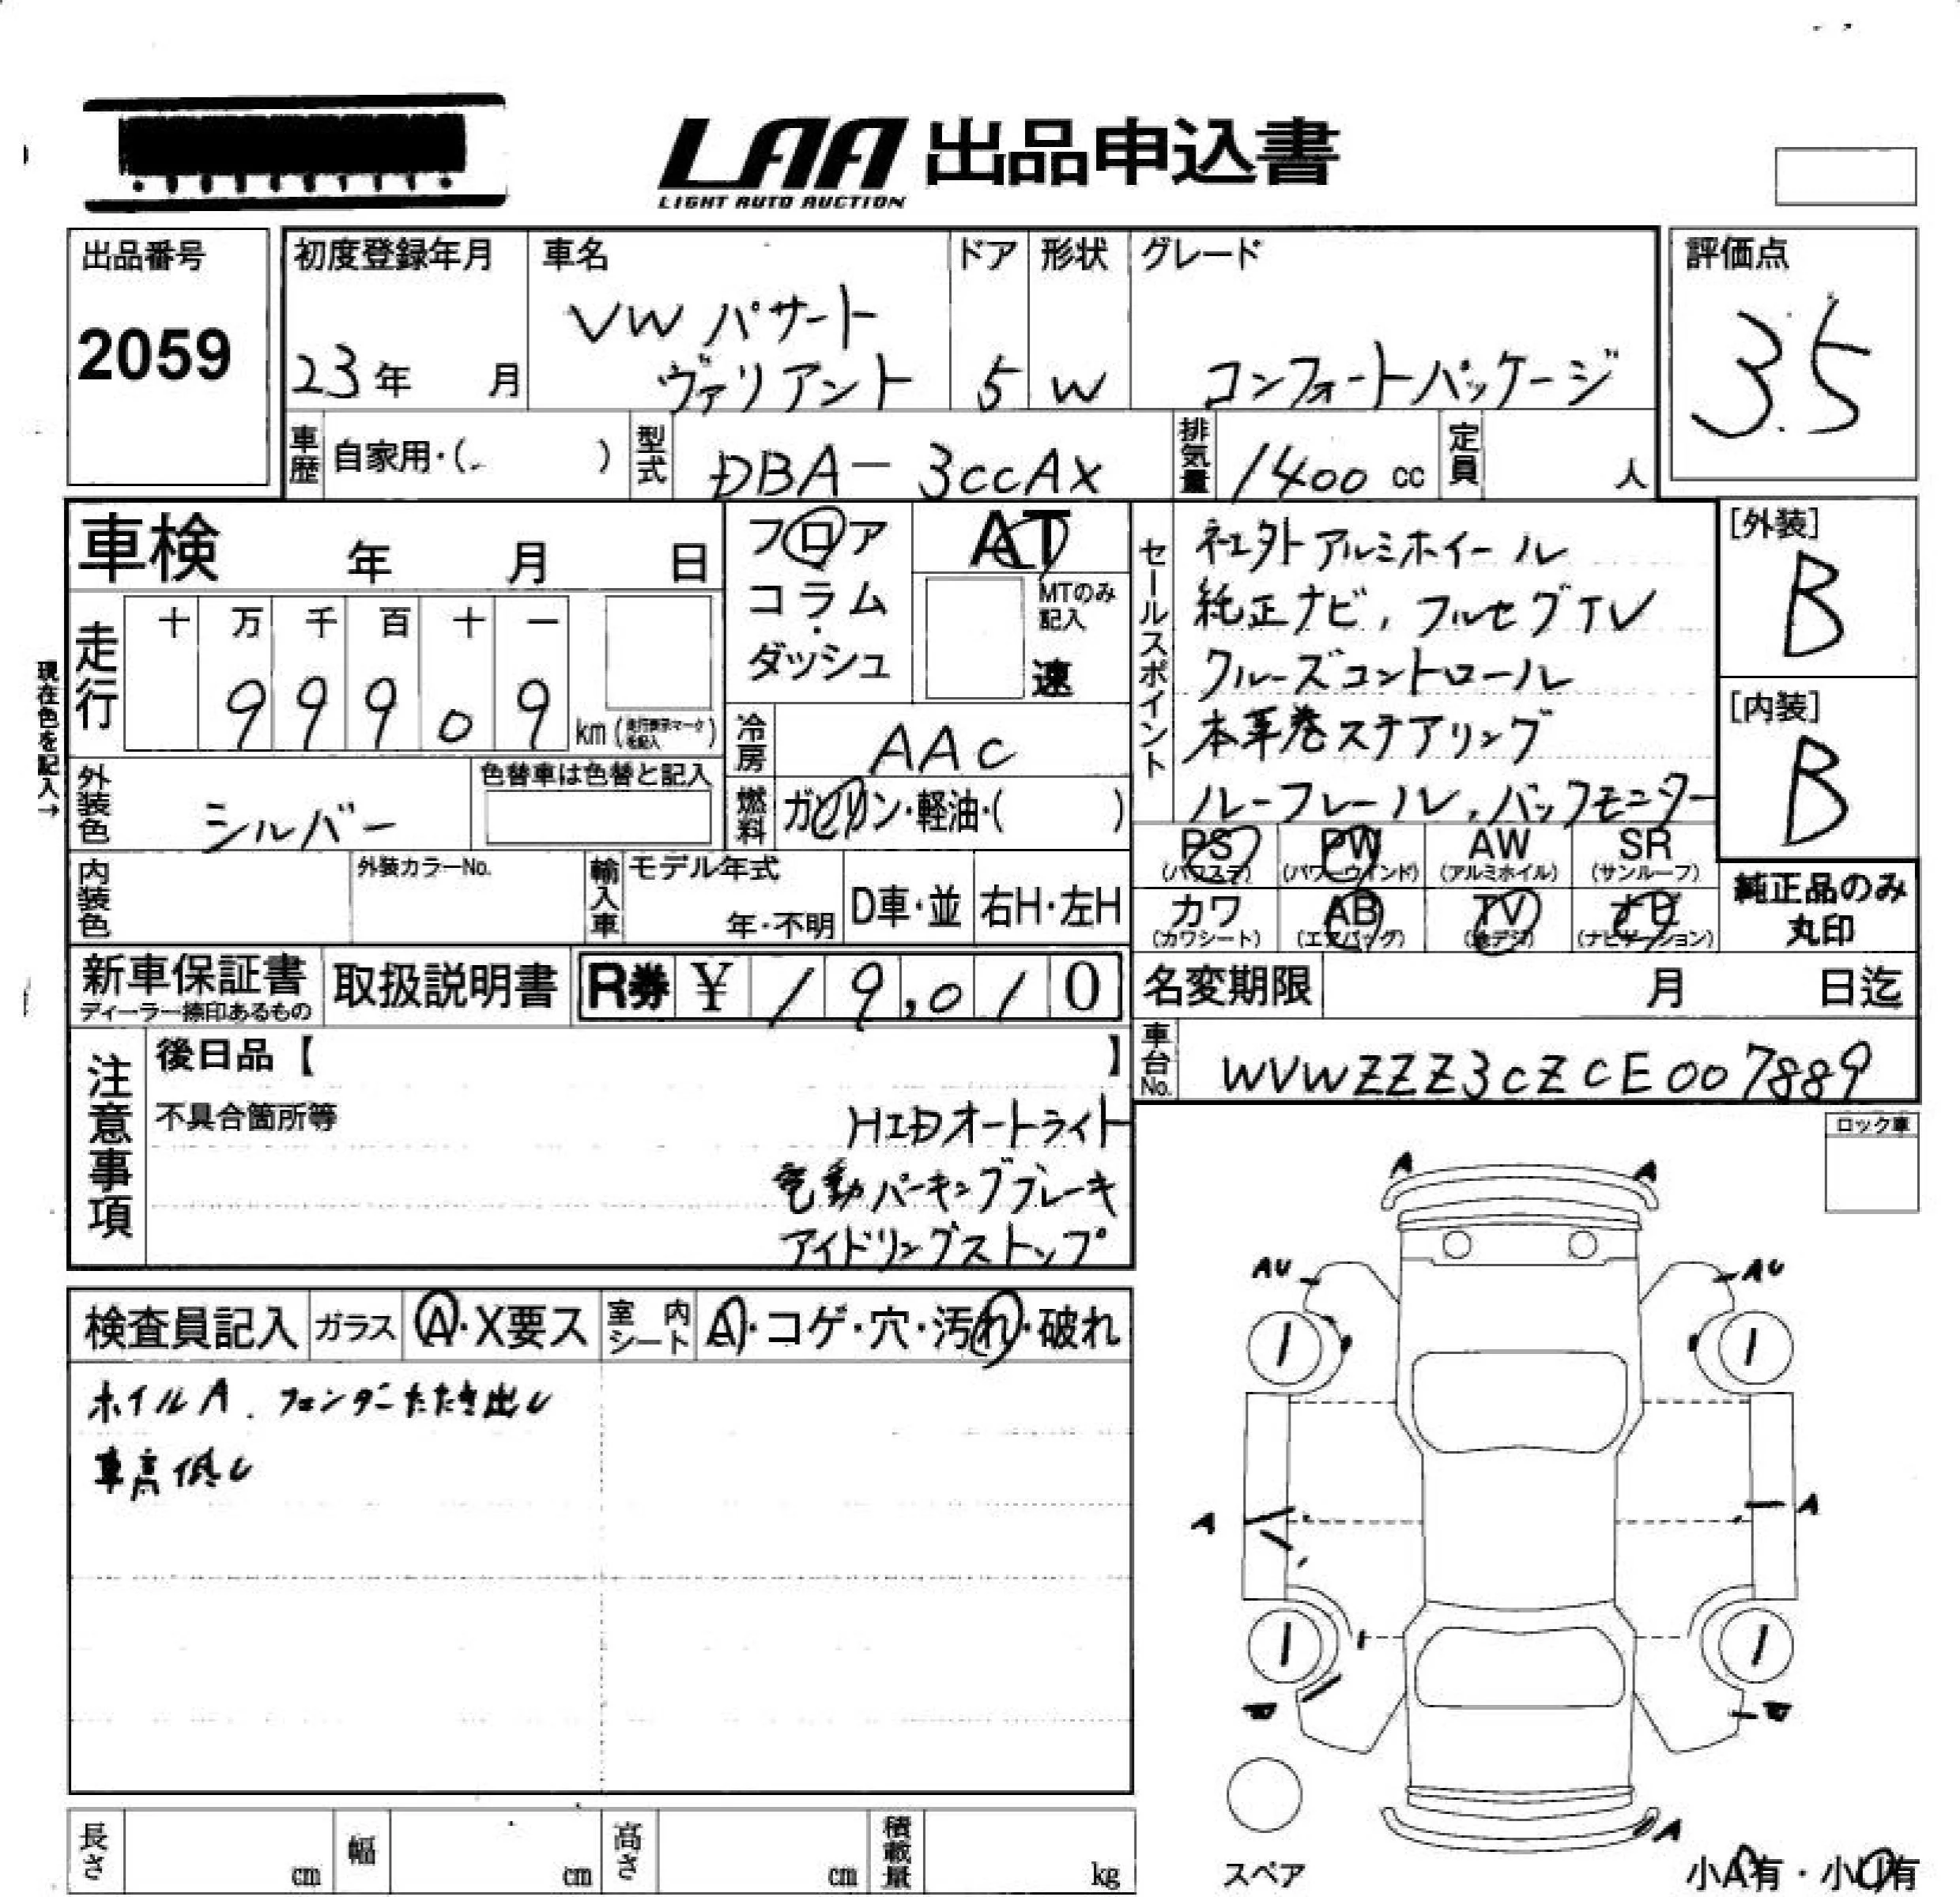 LAA 出品申込書
LIGHT AUTO AUCTION
出品番号
2059
初度登録年月
23年 月
車名
VW パサート
ヴァリアント
ドア
5
形状
W
グレード
コンフォートパッケージ
評価点
3.5
車歴 自家用・( )
型式 DBA-3CCAX
排気量 1400 cc
定員 人
車検 年 月 日
フロア
コラム
・
ダッシュ
AT
MTのみ
記入
速
セールスポイント
社外アルミホイール
純正ナビ, フルセグTV
クルーズコントロール
本革巻ステアリング
ルーフレール, バックモニター
[外装]
B
[内装]
B
現在色を記入→
走行
十 万 千 百 十 一
9 9 9 0 9 km
冷房 AAC
外装色 シルバー
色替車は色替と記入
燃料 ガソリン・軽油・( )
PS PW AW SR
(パワステ) (パワーウインド) (アルミホイル) (サンルーフ)
カワ AB TV ナビ
(カワシート) (エアバッグ) (地デジ) (ナビゲーション)
純正品のみ
丸印
内装色
外装カラーNo.
輸入車
モデル年式
年・不明
D車・並
右H・左H
新車保証書
ディーラー捺印あるもの
取扱説明書
R券 ¥ 19,010
名変期限 月 日迄
車台No. WVWZZZ3CZCE007889
注意事項
後日品【 】
不具合箇所等
HIDオートライト
電動パーキングブレーキ
アイドリングストップ
ロック車
検査員記入
ガラス A・X要ス
室内シート A・コゲ・穴・汚れ・破れ
ホイルA. フェンダーたたき出し
車高低し
A A
AU AU
A A
A
スペア
小A有・小U有
長さ cm
幅 cm
高さ cm
積載量 kg